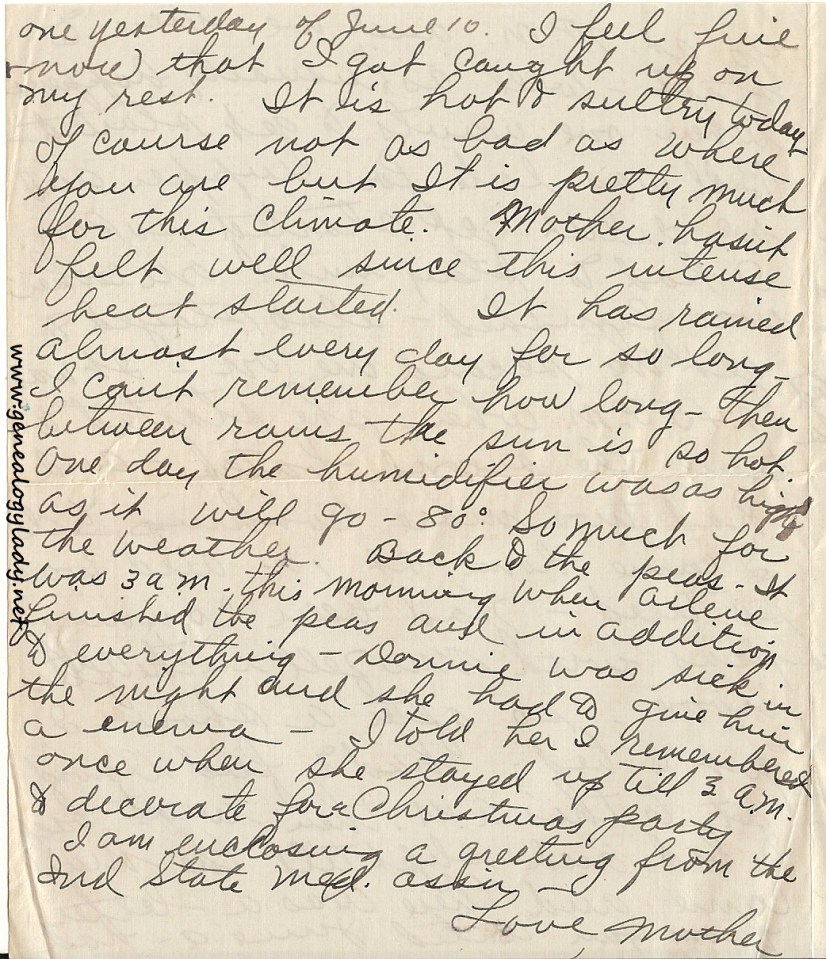 one yesterday of June 10. I feel fine
now that I got caught up on
my rest. It is hot & sultry today -
of course not as bad as where
you are but It is pretty much
for this climate. Mother hasn't
felt well since this intense
heat started. It has rained
almost every day for so long -
I can't remember how long - then
between rains the sun is so hot.
One day the humidifier was as high
as it will go - 80°. So much for
the weather. Back to the peas - It
was 3 a m. this morning when Arlene
finished the peas and in addition
to everything - Donnie was sick in
the night and she had to give him
a enema - I told her I remembered
once when she stayed up till 3 a.m.
to decorate for a Christmas party
I am enclosing a greeting from the
Ind State Med. assn -
Love, Mother
www.genealogylady.net